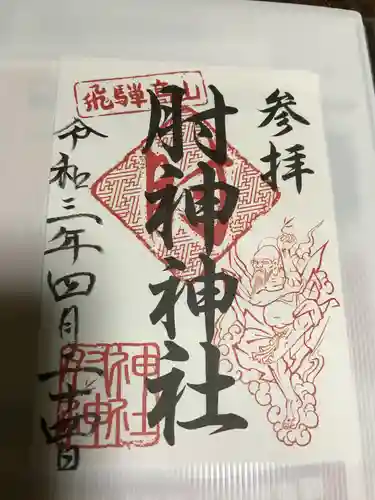 飛騨高山
参拝
肘神神社
令和三年四月二十四日